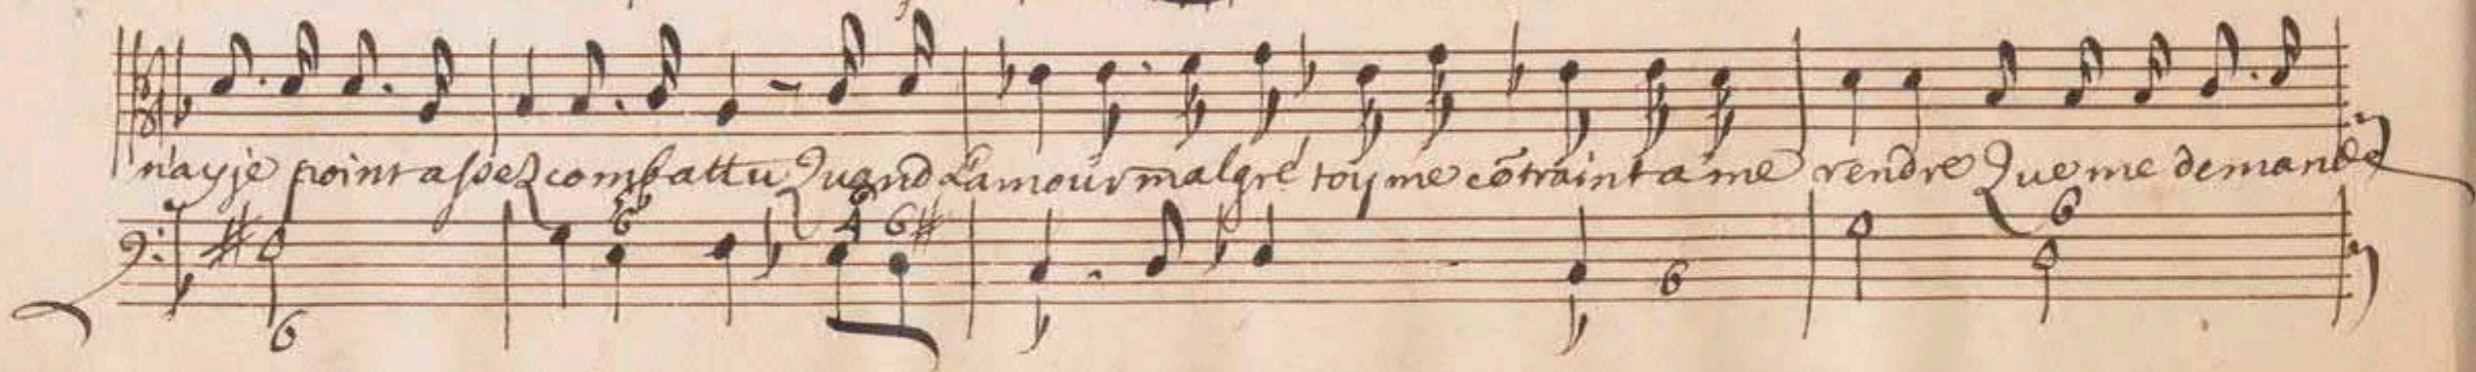 n'ay je point assez combattu Quand L'amour malgré toy me cõtraint a me rendre Que me demandes
6 4 6# 6
6 6